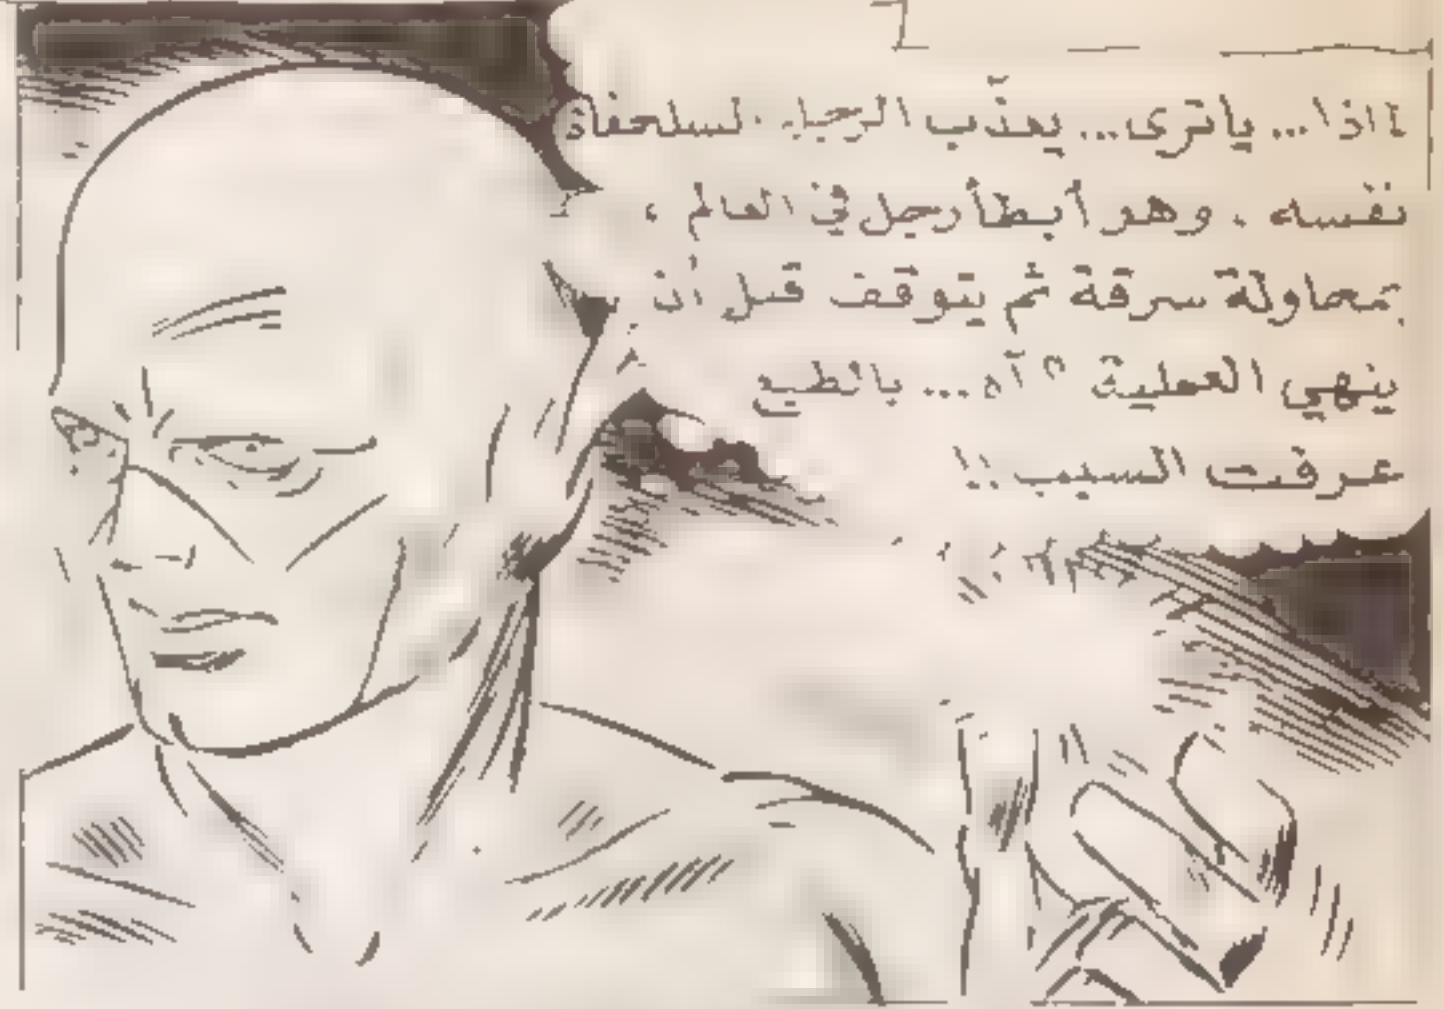 لماذا... ياترى... يعذّب الرجل السلحفاة
نفسه ، وهو أبطأ رجل في العالم ،
بمحاولة سرقة ثم يتوقف قبل أن
ينهي العملية ؟ آه... بالطبع
عرفت السبب !!